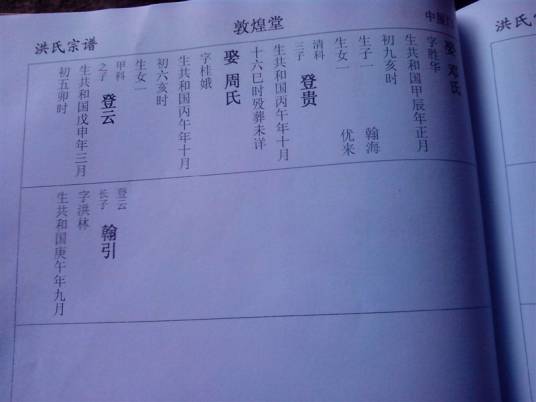 洪氏宗谱
敦煌堂
中国
娶 邓氏
字胜华
生共和国甲辰年正月
初九亥时
生子一 翰海
生女一 优来
清科
三子
登贵
生共和国丙午年十月
十六巳时殁葬未详
娶 周氏
字桂娥
生共和国丙午年十月
初六亥时
生女一
甲科
之子
登云
生共和国戊申年三月
初五卯时
登云
长子
翰引
字洪林
生共和国庚午年九月
洪氏宗